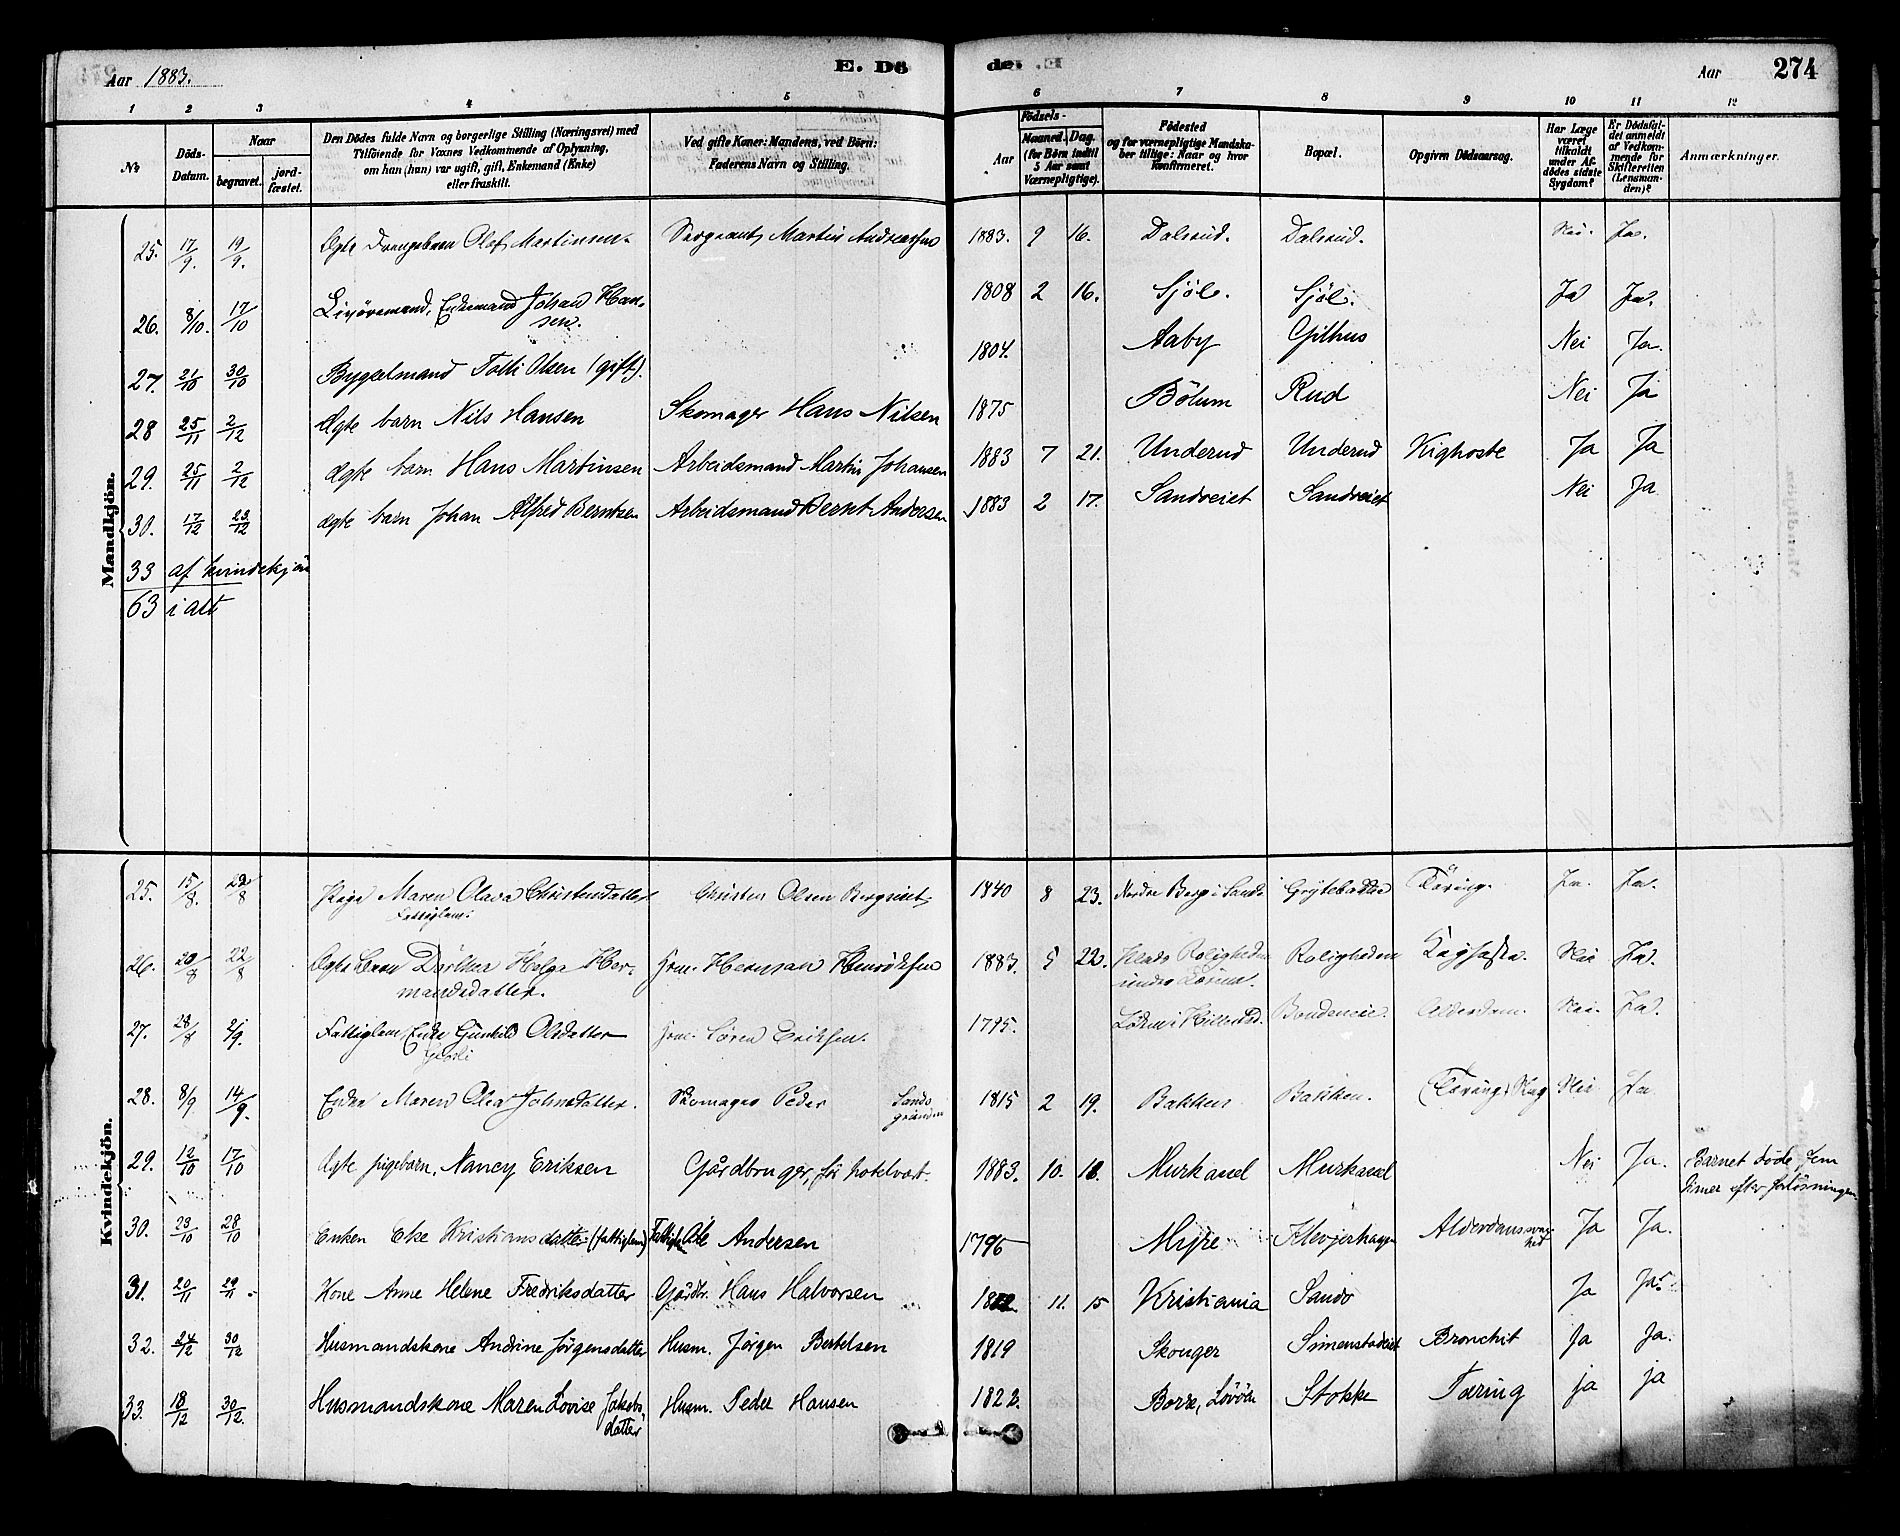 Aar 1883.
E. Dö
de. E.
Aar 274
1 2 3 4 5 6 7 8 9 10 11 12
№
Döds-Datum.
Naar
begravet.
jord-fæstet.
Den Dödes fulde Navn og borgerlige Stilling (Næringsvei) med
Tilföiende for Voxnes Vedkommende af Oplysning,
om han (hun) var ugift, gift, Enkemand (Enke)
eller fraskilt.
Ved gifte Koner: Mandens, ved Börn:
Faderens Navn og Stilling.
Födsels-
Aar
Maaned. Dag.
(for Børn indtil
5 Aar samt
Værnepligtige).
Födested
og for værnepligtige Mandska-
ber tillige: Naar og hvor
Konfirmeret.
Bopæl.
Opgiven Dödsaarsag.
Har Læge
været
tilkaldt
under Af-
dödes sidste
Sygdom?
Er Dödsfal-
det anmeldt
af Vedkom-
mende for
Skifteretten
(Lensman-
den)?
Anmærkninger.
Mandkjön.
25. 17/9. 19/9. Ægte Drengebarn Olaf Martinsen. Sergeant Martin 1883. 9 16. Dalsrud. Dalsrud. Nei. Ja.
26. 8/10. 17/10 Enkemand Johan Han-
sen. 1808 2 16. Sjöl. Ja Ja.
27. 21/10 30/10 Bygselmand Olsen (gift). 1804. Aaby Gilhus Nei Ja.
28 25/11 2/12 Ægte barn Nils Hansen Skomager Hans Nilsen 1875 Bölum Rud Nei Ja
29. 25/11 2/12 Ægte barn Hans Martinsen Arbeidsmand Martin Johansen 1883 7 21. Underud Underud Kighoste Ja Ja
30. 17/12 23/12 Ægte barn Johan Alfred Berntsen Arbeidsmand Bernt Andersen 1883 2 17. Sandveiet Sandveiet Nei Ja
33 af kvindekjön
63 i alt
Kvindekjön.
25. 15/8. 22/8 Pige Maren Olava Christensdatter Christen Olsen 1840 8 23. Nordre Berg i Sande Tæring. Ja. Ja.
Fattiglem:
26. 20/8 22/8 Ægte Helga Her-
mandsdatter. Hrm. Herman 1883. 5 22. Roligheden Roligheden Nei Ja.
27. 28/8 2/9. Fattiglem, Enke Gunhild Olsdatter Eriksen. 1795. Alderdom. Nei. Ja.
28. 8/9 14/9. Enke Maren Olea Johnsdatter. Skomager Peder 1815 2 19. Bakken Bakken. Nei Ja
29. 12/10 17/10 Ægte pigebarn, Nancy Eriksen Gårdbruger, för hotelvært. 1883. 10. Nei Ja. Barnet døde fem
timer efter forlösningen
30. 23/10 28/10 Enken Else Kristiansdatter (fattiglem) Andersen 1796 Myre Ja Ja.
31. 20/11 29/11 Kone Anne Helene Fredriksdatter Gårdbr. Hans Halvorsen 11. 15 Kristiania Sando Ja Ja
32. 24/12 30/12 Husmandskone Andrine Jörgensdatter Husm. Jörgen Bertelsen 1819 Skouger Bronchit Ja Ja.
33. 18/12 30/12. Husmandskone Maren Lovise Jakobs-
datter Husm. Peder Hansen 1822. Borre, Stokke Tæring ja ja